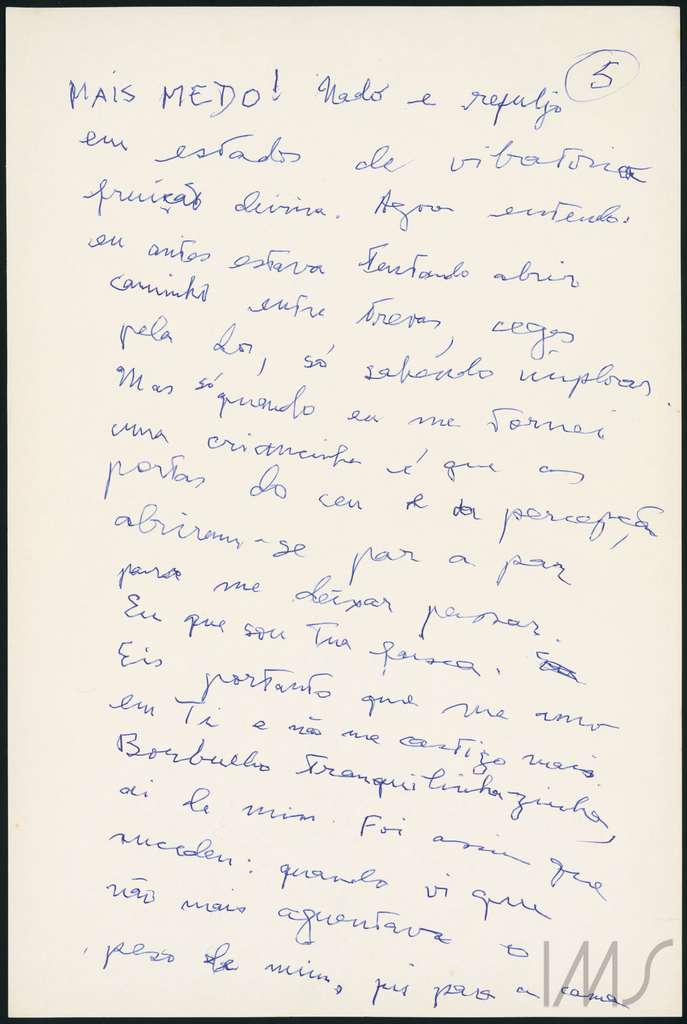 5
MAIS MEDO! Nado e refuljo
em estados de vibatoria
fruição divina. Agora entendo:
eu antes estava tentando abrir
caminho entre trevas, cega
pela dor, só sabendo implorar.
Mas só quando eu me tornei
uma criancinha é que as
portas do ceu e da percepção
abriram-se par a par
para me deixar passar.
Eu que sou Tua faisca.
Eis portanto que me amo
em Ti e não me castigo mais.
Borbulho tranquilinha-zinha,
ai de mim. Foi assim que
sucedeu: quando vi que
não mais aguentava o
peso de mim, fui para a cama
IMS